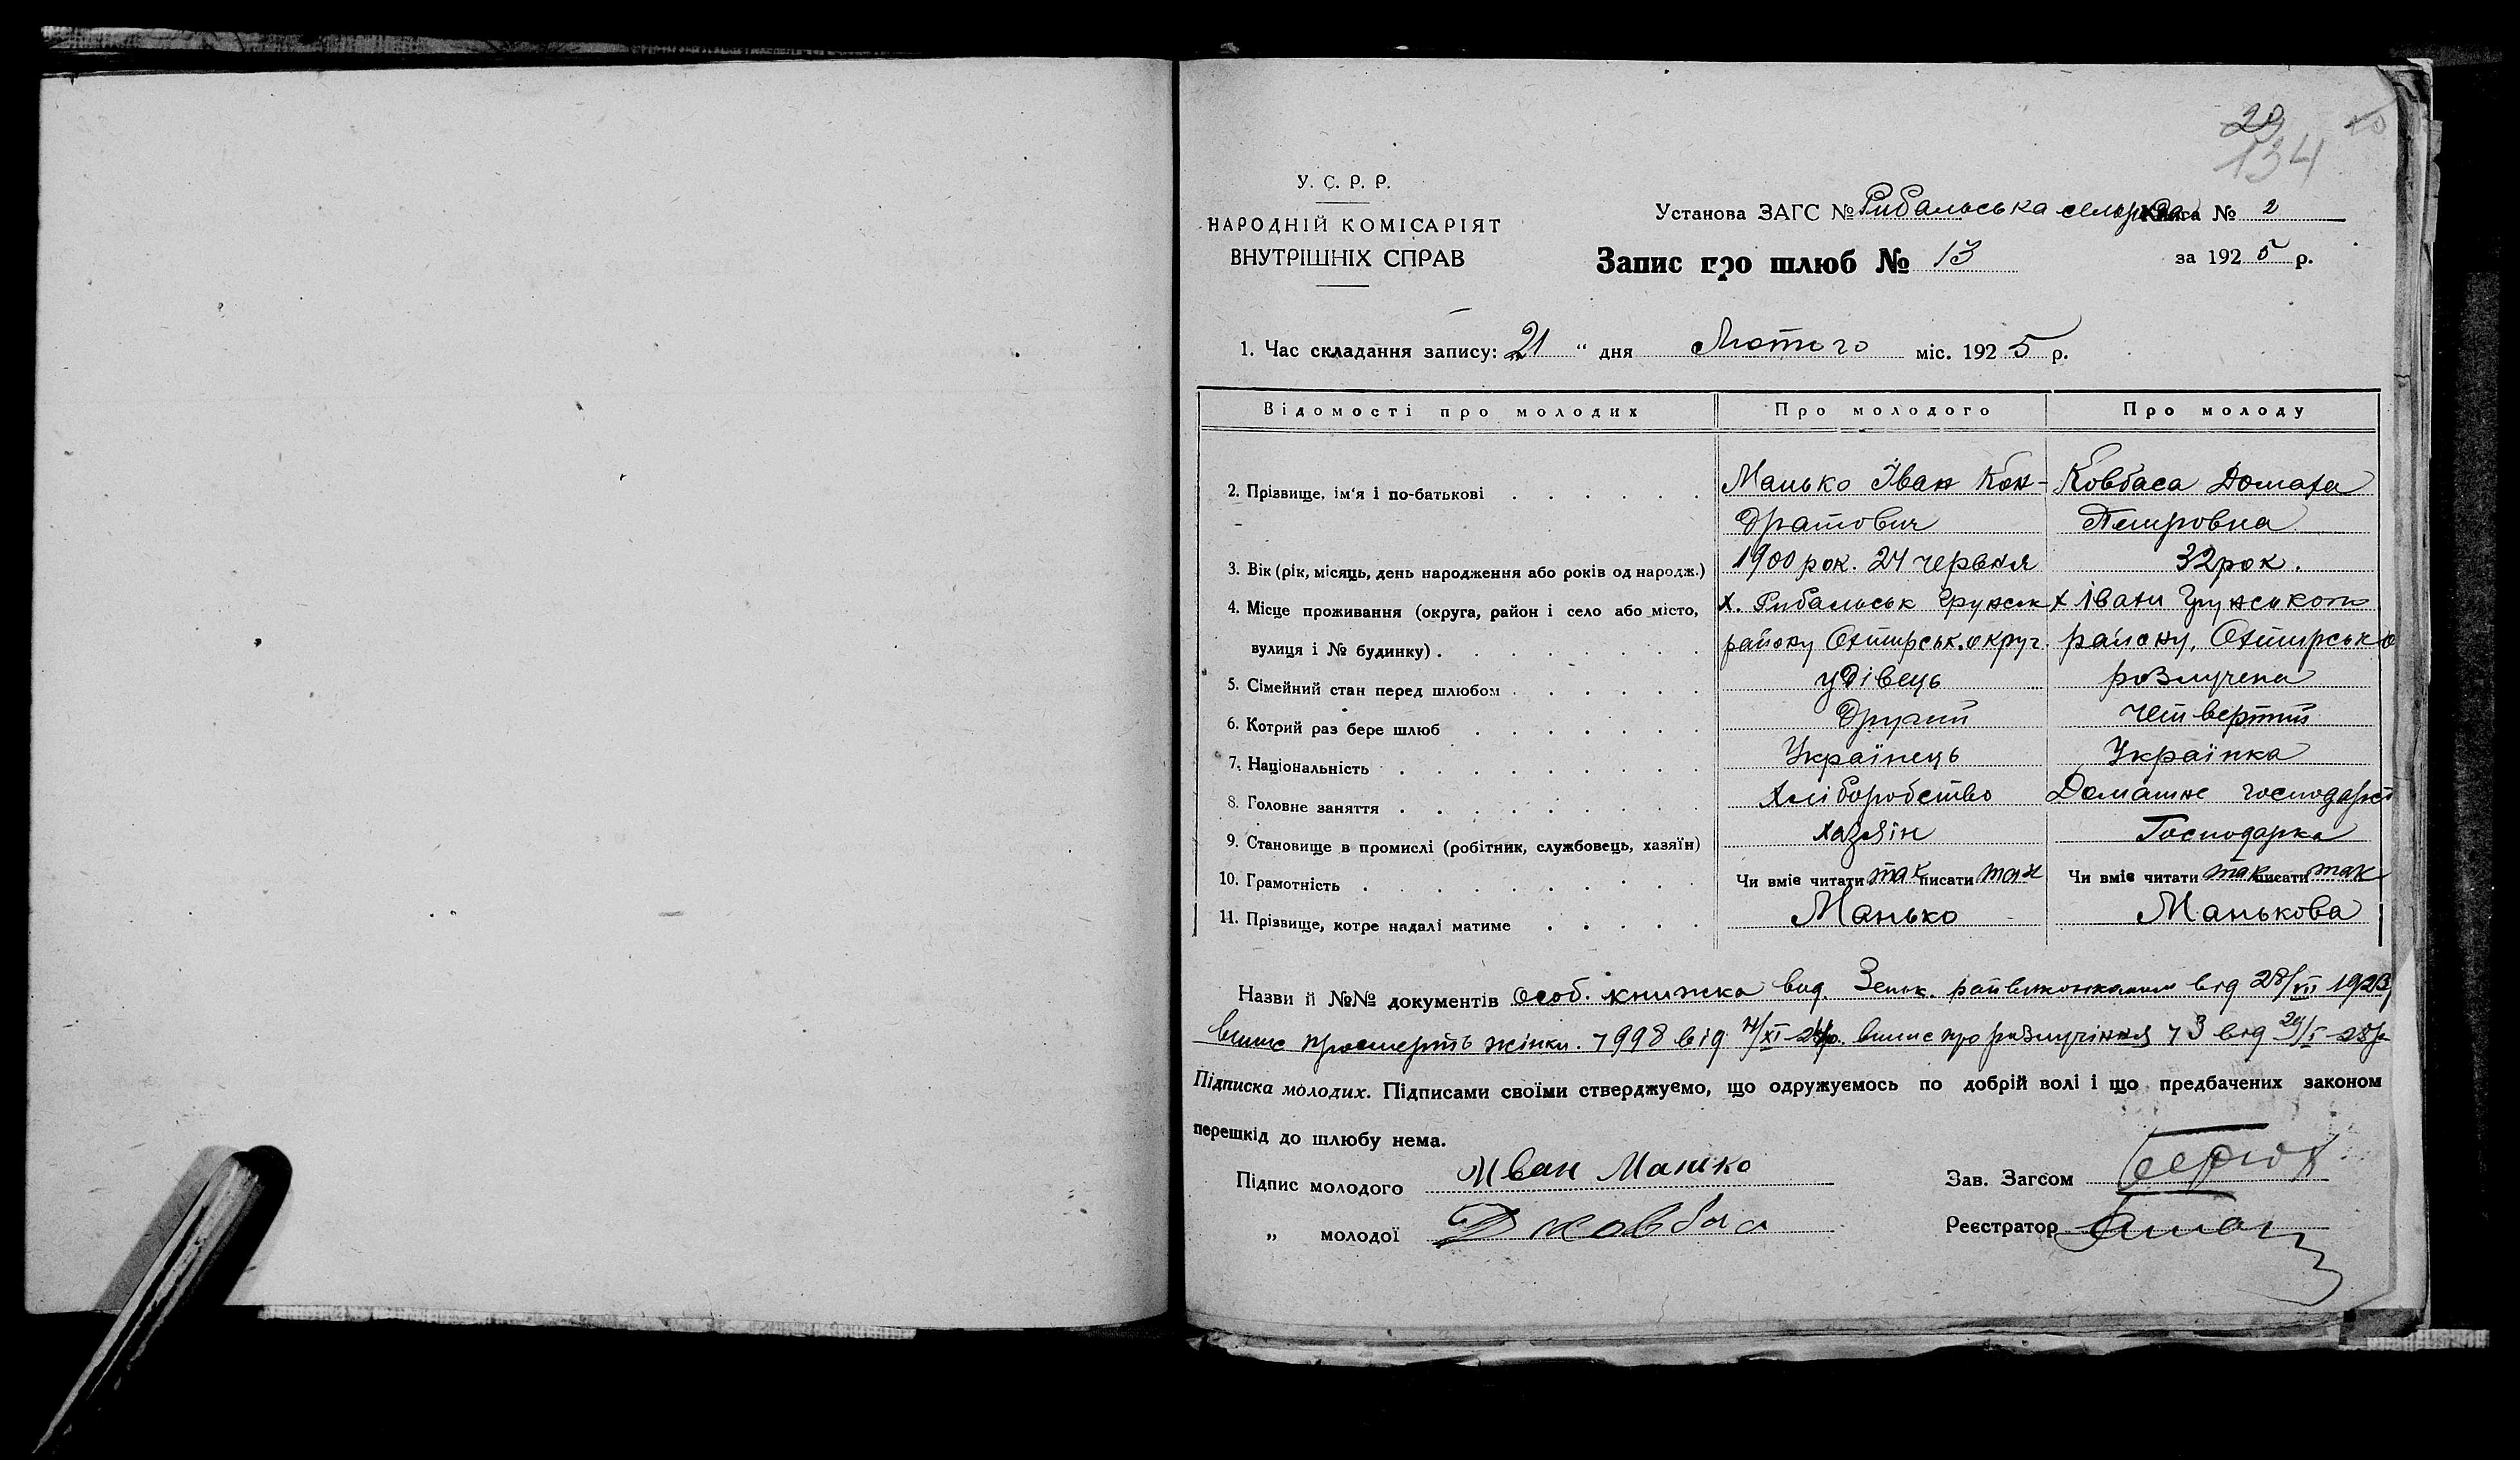 20
134
У. С. Р. Р.
НАРОДНІЙ КОМІСАРІЯТ
ВНУТРІШНІХ СПРАВ
Установа ЗАГС № Рибальська сельрада Книга № 2
Запис про шлюб № 13 за 1925 р.
1. Час складання запису: „21“ дня Лютого міс. 1925 р.
Відомості про молодих Про молодого Про молоду
2. Прізвище, ім'я і по-батькові Манько Іван Кон- Ковбаса Домаха
дратович Петровна
3. Вік (рік, місяць, день народження або років од народж.) 1900 рок. 24 червня 32 рок.
4. Місце проживання (округа, район і село або місто, х. Рибальськ Грунськ х Івани Грунського
вулиця і № будинку) району Охтирськ. округ. району, Охтирсько
5. Сімейний стан перед шлюбом удівець розлучена
6. Котрий раз бере шлюб Другий Четвертий
7. Національність Українець Українка
8. Головне заняття Хліборобство Домашнє господарст
9. Становище в промислі (робітник, службовець, хазяїн) хазяїн Господарка
10. Грамотність Чи вміє читати так писати так Чи вміє читати так писати так
11. Прізвище, котре надалі матиме Манько Манькова
Назви й №№ документів особ. книжка вид. Зеньк. райвиконкомом від 28/VII 1923
випис про смерть жінки. ч 998 від /XI випис про розлучіння ч 3 від 29/I 25 р
Підписка молодих. Підписами своїми стверджуємо, що одружуємось по добрій волі і що предбачених законом
перешкід до шлюбу нема.
Підпис молодого Иван Манко Зав. Загсом
„ молодої Д Ковбаса Реєстратор